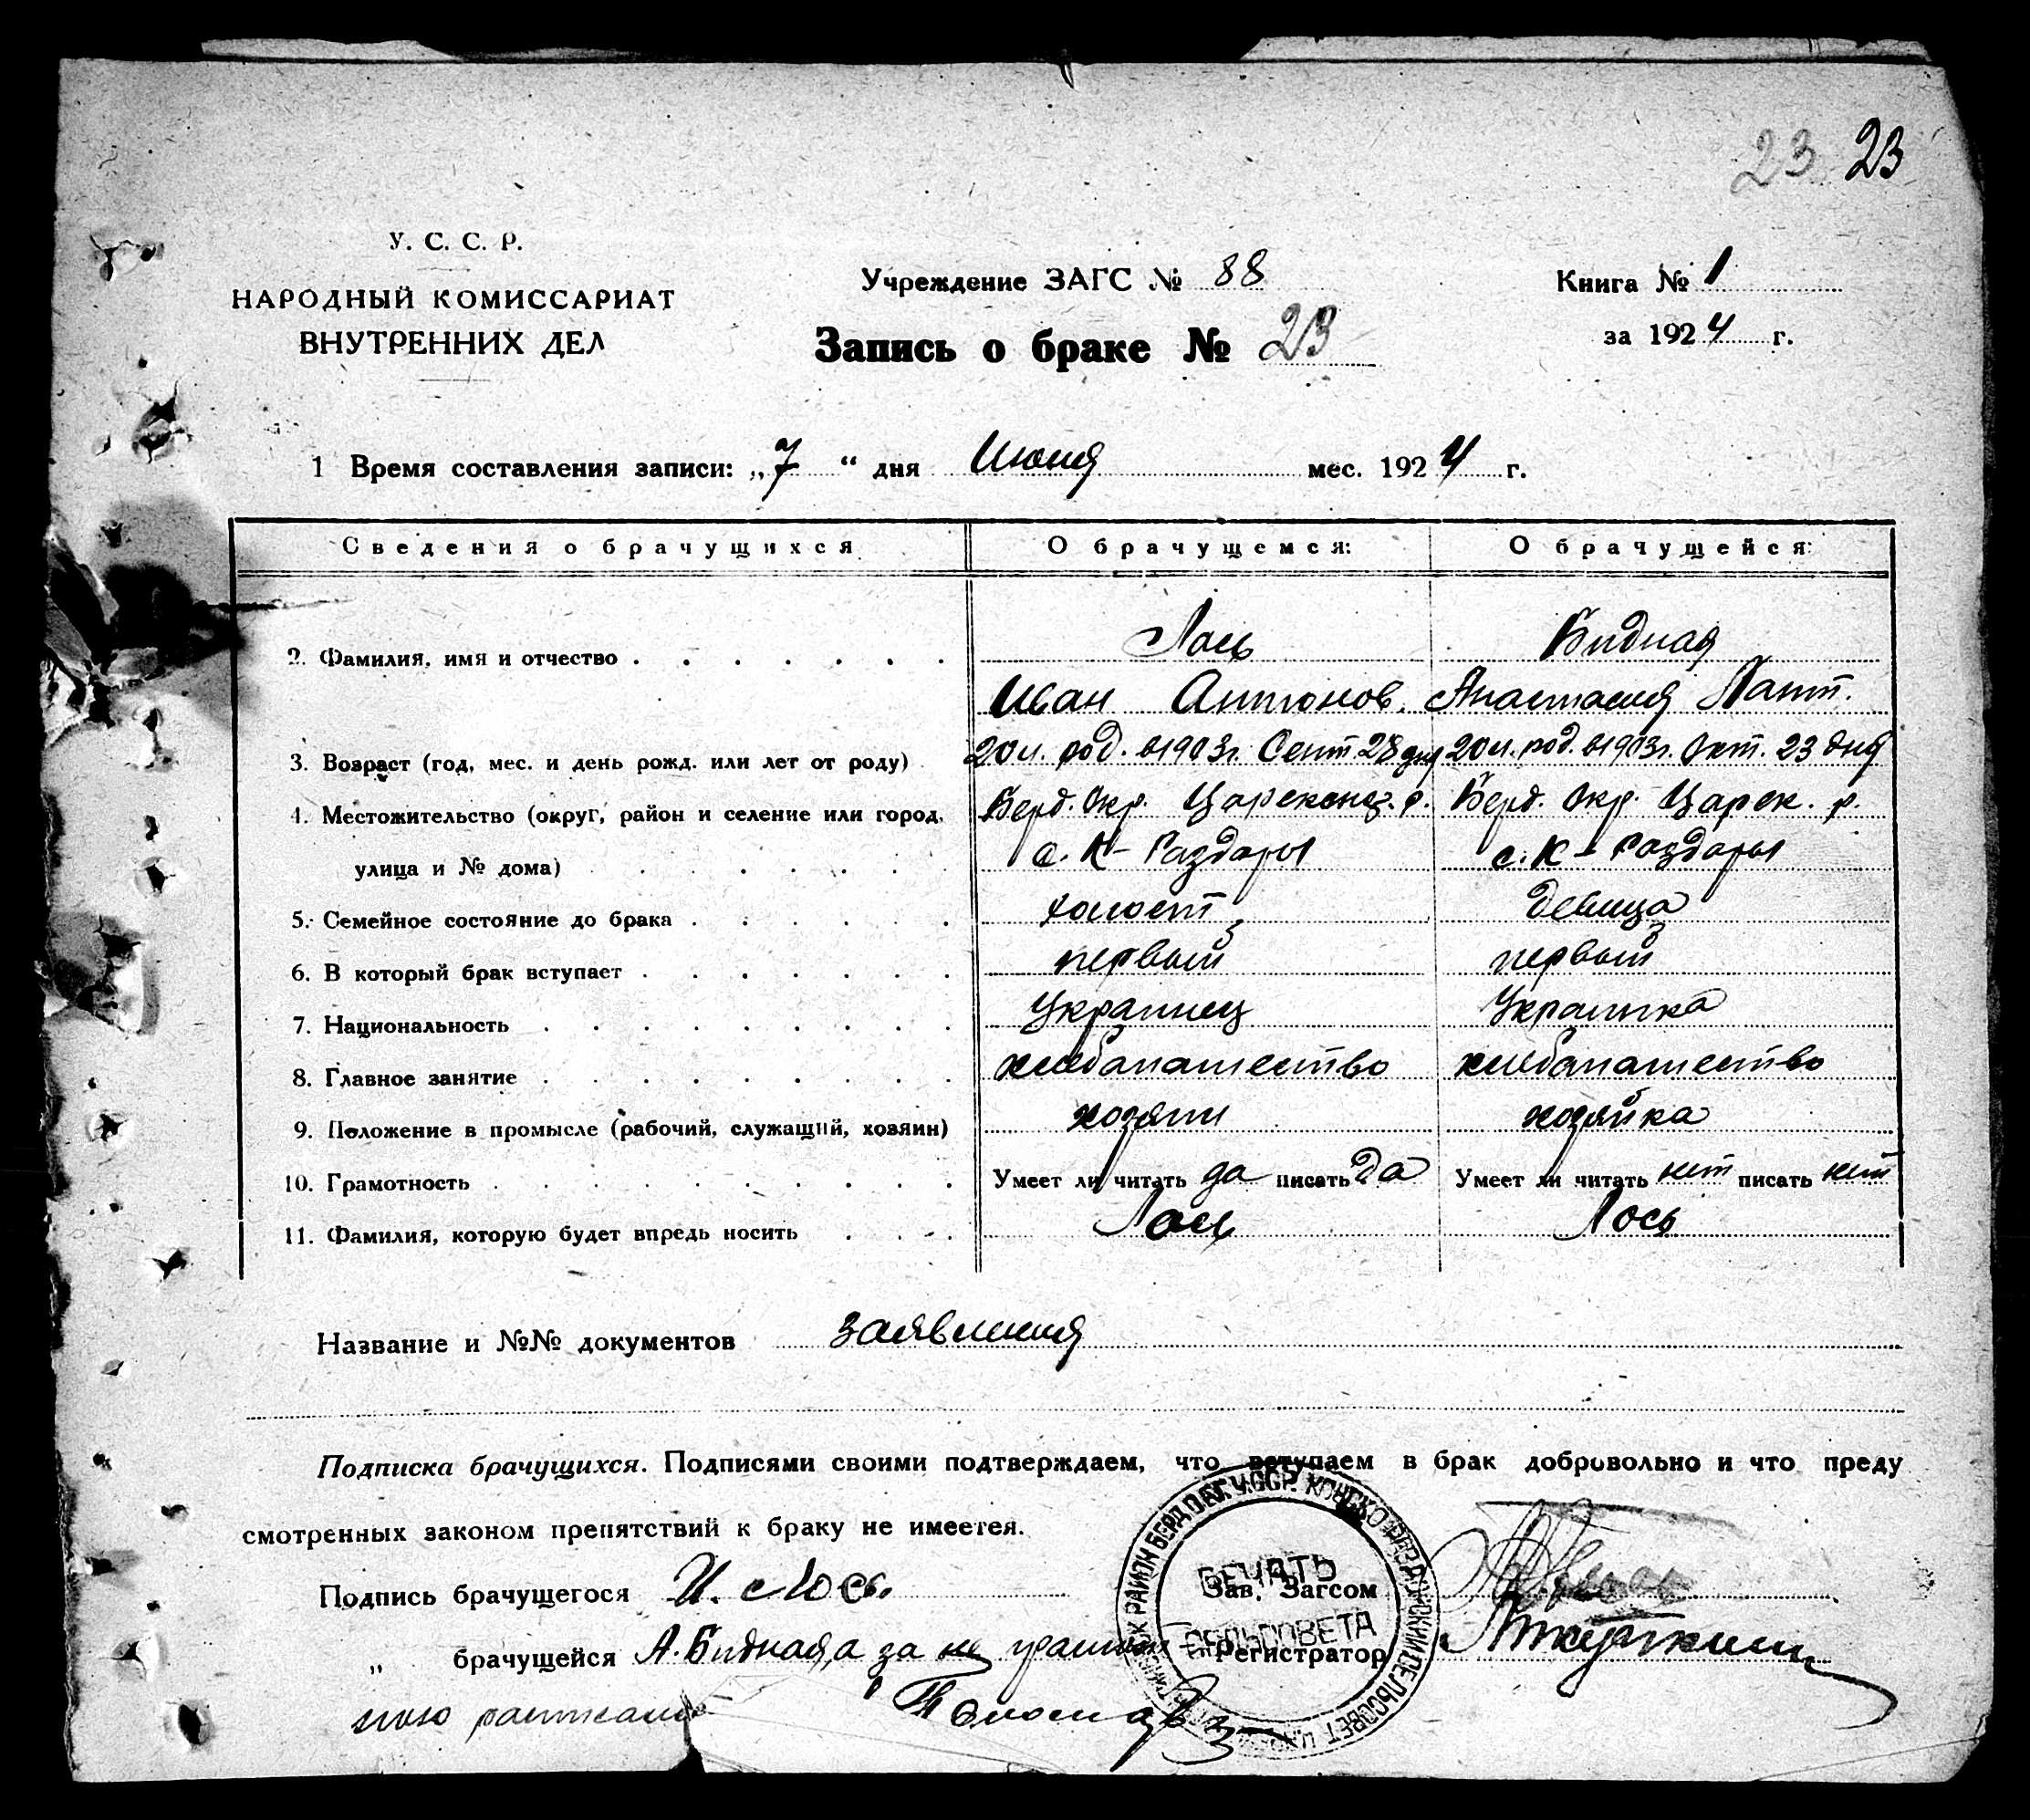 23 23
У. С. С. Р.
НАРОДНЫЙ КОМИССАРИАТ
ВНУТРЕННИХ ДЕЛ
Учреждение ЗАГС № 88
Запись о браке № 23
Книга № 1
за 1924 г.
1 Время составления записи: „7“ дня Июня мес. 1924 г.
Сведения о брачущихся О брачущемся: О брачущейся:
2. Фамилия, имя и отчество Лось Бидная
Иван Антонов. Анастасия Пант.
3. Возраст (год, мес. и день рожд. или лет от роду) 20 л. род. в 1903 г. Сент. 28 дня 20 л. род. в 1903 г. Окт. 23 дня
4. Местожительство (округ, район и селение или город, Берд. Окр. Цареконст. р. Берд. Окр. Царек. р.
улица и № дома) с. К-Раздоры с. К-Раздоры
5. Семейное состояние до брака холост девица
6. В который брак вступает первый первый
7. Национальность Украинец Украинка
8. Главное занятие хлебопашество хлебопашество
9. Положение в промысле (рабочий, служащий, хозяин) хозяин хозяйка
10. Грамотность Умеет ли читать да писать да Умеет ли читать нет писать нет
11. Фамилия, которую будет впредь носить Лось Лось
Название и №№ документов заявления
Подписка брачущихся. Подписями своими подтверждаем, что вступаем в брак добровольно и что преду
смотренных законом препятствий к браку не имеется.
Подпись брачущегося И. Лось. Зав. Загсом
„ брачущейся А. Бидная, а за не грамот Регистратор
ною расписался
ПЕЧАТЬ
СЕЛЬСОВЕТА
РАЙОН БЕРД. ОКР. У.С.С.Р. КОНСКО-РАЗДОРСКИЙ СЕЛЬСОВЕТ